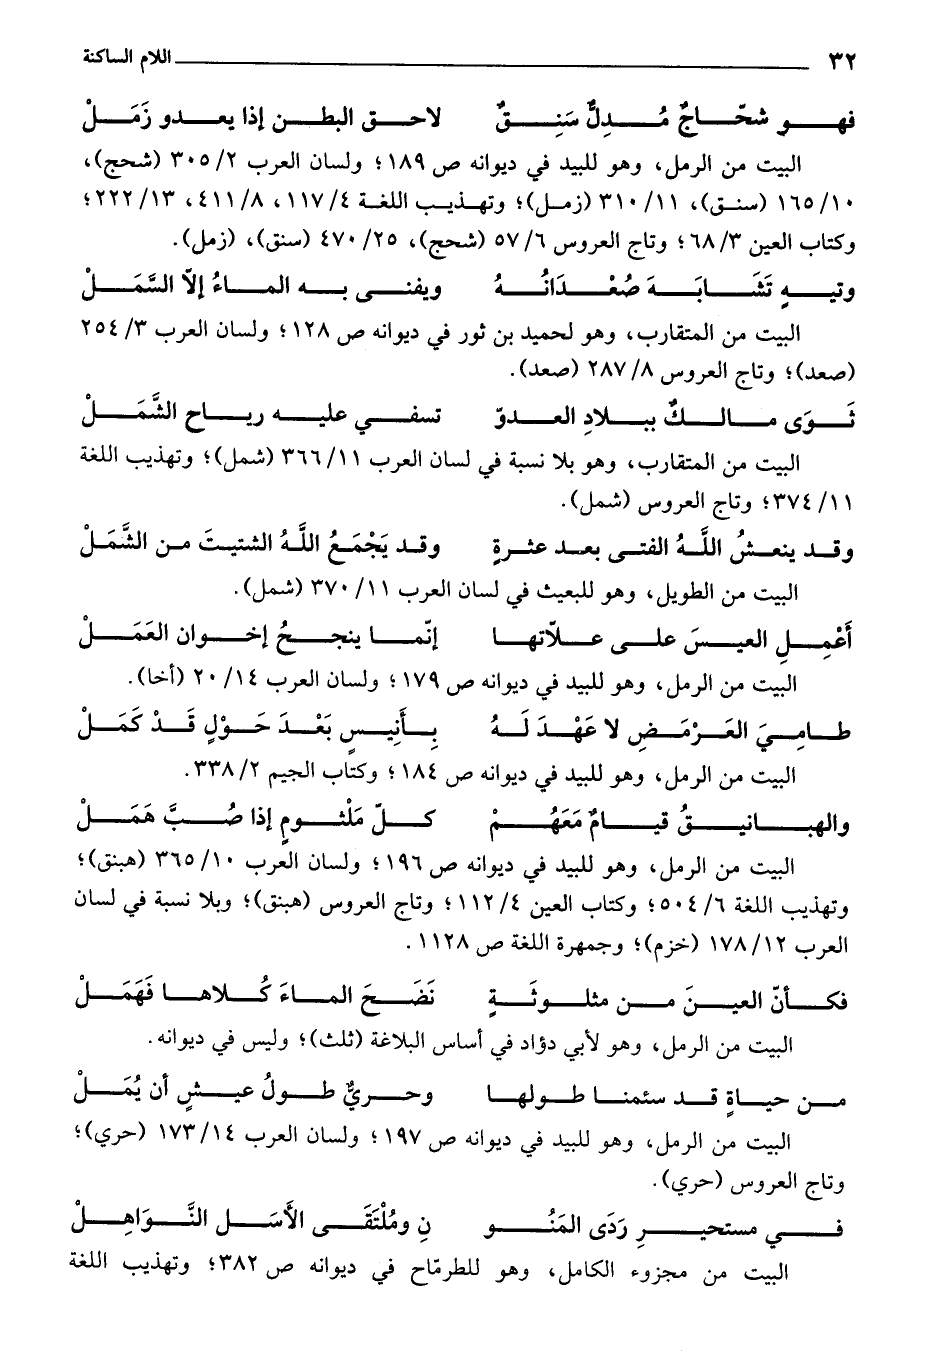 ٣٢ اللام الساكنة
فهو شحّاجٌ مُدِلٌّ سَنِقٌ لاحق البطن إذا يعدو زَمَلْ
البيت من الرمل، وهو للبيد في ديوانه ص ١٨٩؛ ولسان العرب ٢/ ٣٠٥ (شحج)،
١٠/ ١٦٥ (سنق)، ١١/ ٣١٠ (زمل)؛ وتهذيب اللغة ٤/ ١١٧، ٨/ ٤١١، ١٣/ ٢٢٢؛
وكتاب العين ٣/ ٦٨؛ وتاج العروس ٦/ ٥٧ (شحج)، ٢٥/ ٤٧٠ (سنق)، (زمل).
وتيهٍ تَشَابَهَ صُعْدَانُهُ ويفنى به الماءُ إلاّ السَّمَلْ
البيت من المتقارب، وهو لحميد بن ثور في ديوانه ص ١٢٨؛ ولسان العرب ٣/ ٢٥٤
(صعد)؛ وتاج العروس ٨/ ٢٨٧ (صعد).
ثَوَى مالكٌ ببلادِ العدوّ تسفي عليه رياح الشَّمَلْ
البيت من المتقارب، وهو بلا نسبة في لسان العرب ١١/ ٣٦٦ (شمل)؛ وتهذيب اللغة
١١/ ٣٧٤؛ وتاج العروس (شمل).
وقد ينعشُ اللَّهُ الفتى بعد عثرةٍ وقد يَجْمَعُ اللَّهُ الشتيتَ من الشَّمَلْ
البيت من الطويل، وهو للبعيث في لسان العرب ١١/ ٣٧٠ (شمل).
أَعْمِلِ العيسَ على علاّتها إنّما ينجحُ إخوان العَمَلْ
البيت من الرمل، وهو للبيد في ديوانه ص ١٧٩؛ ولسان العرب ١٤/ ٢٠ (أخا).
طامِيَ العَرْمَضِ لا عَهْدَ لَهُ بِأَنِيسٍ بَعْدَ حَوْلٍ قَدْ كَمَلْ
البيت من الرمل، وهو للبيد في ديوانه ص ١٨٤؛ وكتاب الجيم ٢/ ٣٣٨.
والهبانيقُ قيامٌ مَعَهُمْ كلّ مَلْثومٍ إذا صُبَّ هَمَلْ
البيت من الرمل، وهو للبيد في ديوانه ص ١٩٦؛ ولسان العرب ١٠/ ٣٦٥ (هبنق)؛
وتهذيب اللغة ٦/ ٥٠٤؛ وكتاب العين ٤/ ١١٢؛ وتاج العروس (هبنق)؛ وبلا نسبة في لسان
العرب ١٢/ ١٧٨ (خزم)؛ وجمهرة اللغة ص ١١٢٨.
فكأنّ العينَ من مثلوثَةٍ نَضَحَ الماءَ كُلاها فَهَمَلْ
البيت من الرمل، وهو لأبي دؤاد في أساس البلاغة (ثلث)؛ وليس في ديوانه.
من حياةٍ قد سئمنا طولها وحريٌّ طولُ عيشٍ أن يُمَلْ
البيت من الرمل، وهو للبيد في ديوانه ص ١٩٧؛ ولسان العرب ١٤/ ١٧٣ (حري)؛
وتاج العروس (حري).
في مستحيرِ رَدَى المَنُو نِ ومُلْتَقَى الأَسَلِ النَّوَاهِلْ
البيت من مجزوء الكامل، وهو للطرمّاح في ديوانه ص ٣٨٢؛ وتهذيب اللغة